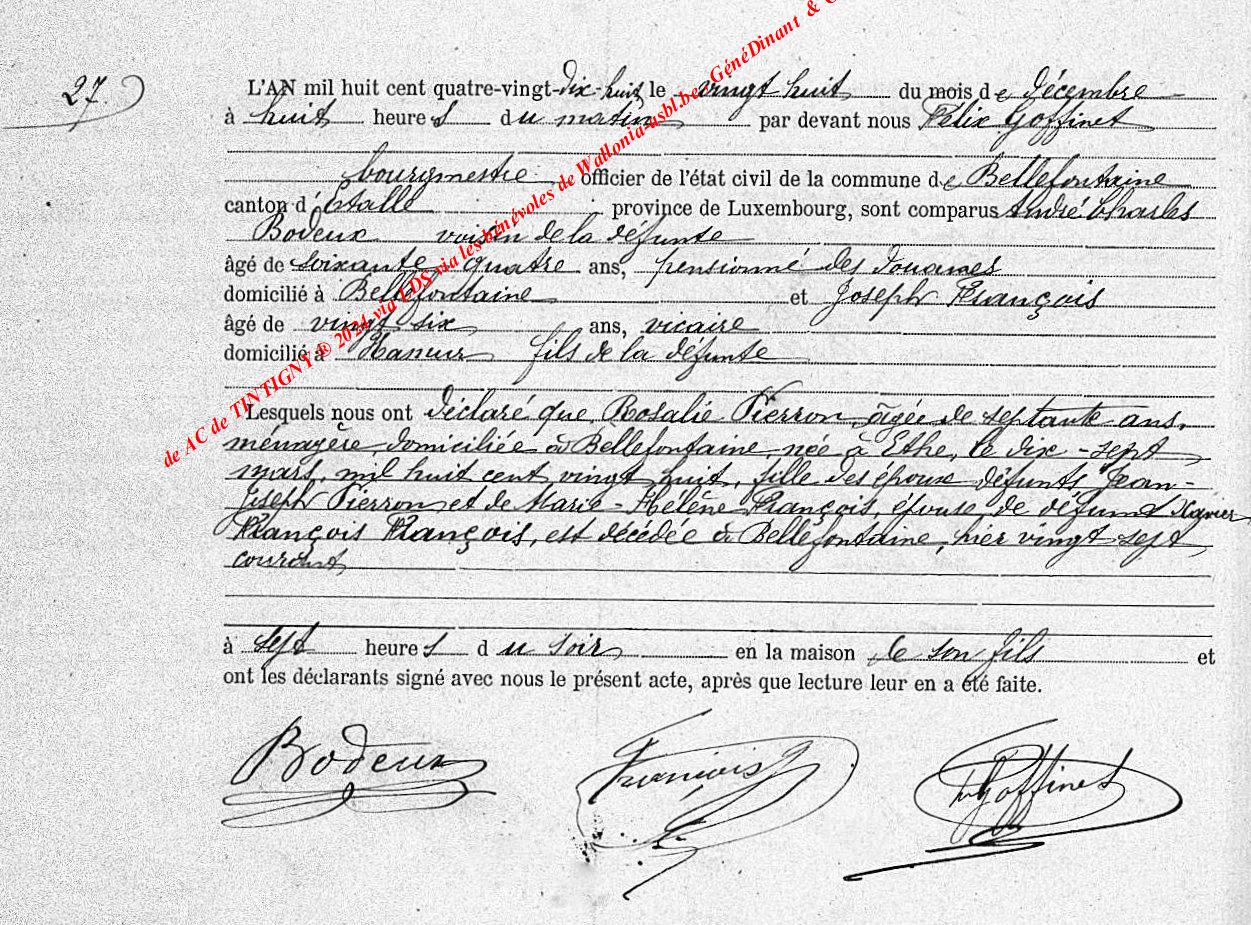 27.
L'AN mil huit cent quatre-vingt-dix-huit le vingt huit du mois de décembre
à huit heures du matin par devant nous Félix Goffinet
bourgmestre officier de l'état civil de la commune de Bellefontaine
canton d'Etalle province de Luxembourg, sont comparus André Charles
Bodeux voisin de la défunte
âgé de soixante quatre ans, pensionné des douanes
domicilié à Bellefontaine et Joseph François
âgé de vingt six ans, vicaire
domicilié à fils de la défunte
Lesquels nous ont déclaré que Rosalie Pierron, âgée de septante ans,
ménagère, domiciliée à Bellefontaine, née à Ethe, le dix-sept
mars, mil huit cent vingt huit, fille des époux défunts Jean-
Joseph Pierron et de Marie-Hélène François, épouse de défunt Xavier
François François, est décédée à Bellefontaine, hier vingt-sept
courant,
à sept heures du soir en la maison de son fils et
ont les déclarants signé avec nous le présent acte, après que lecture leur en a été faite.
Bodeux François Goffinet
de AC de TINTIGNY ® 2024 via LDS via les bénévoles de Wallonia-asbl.be - GénéDinant &